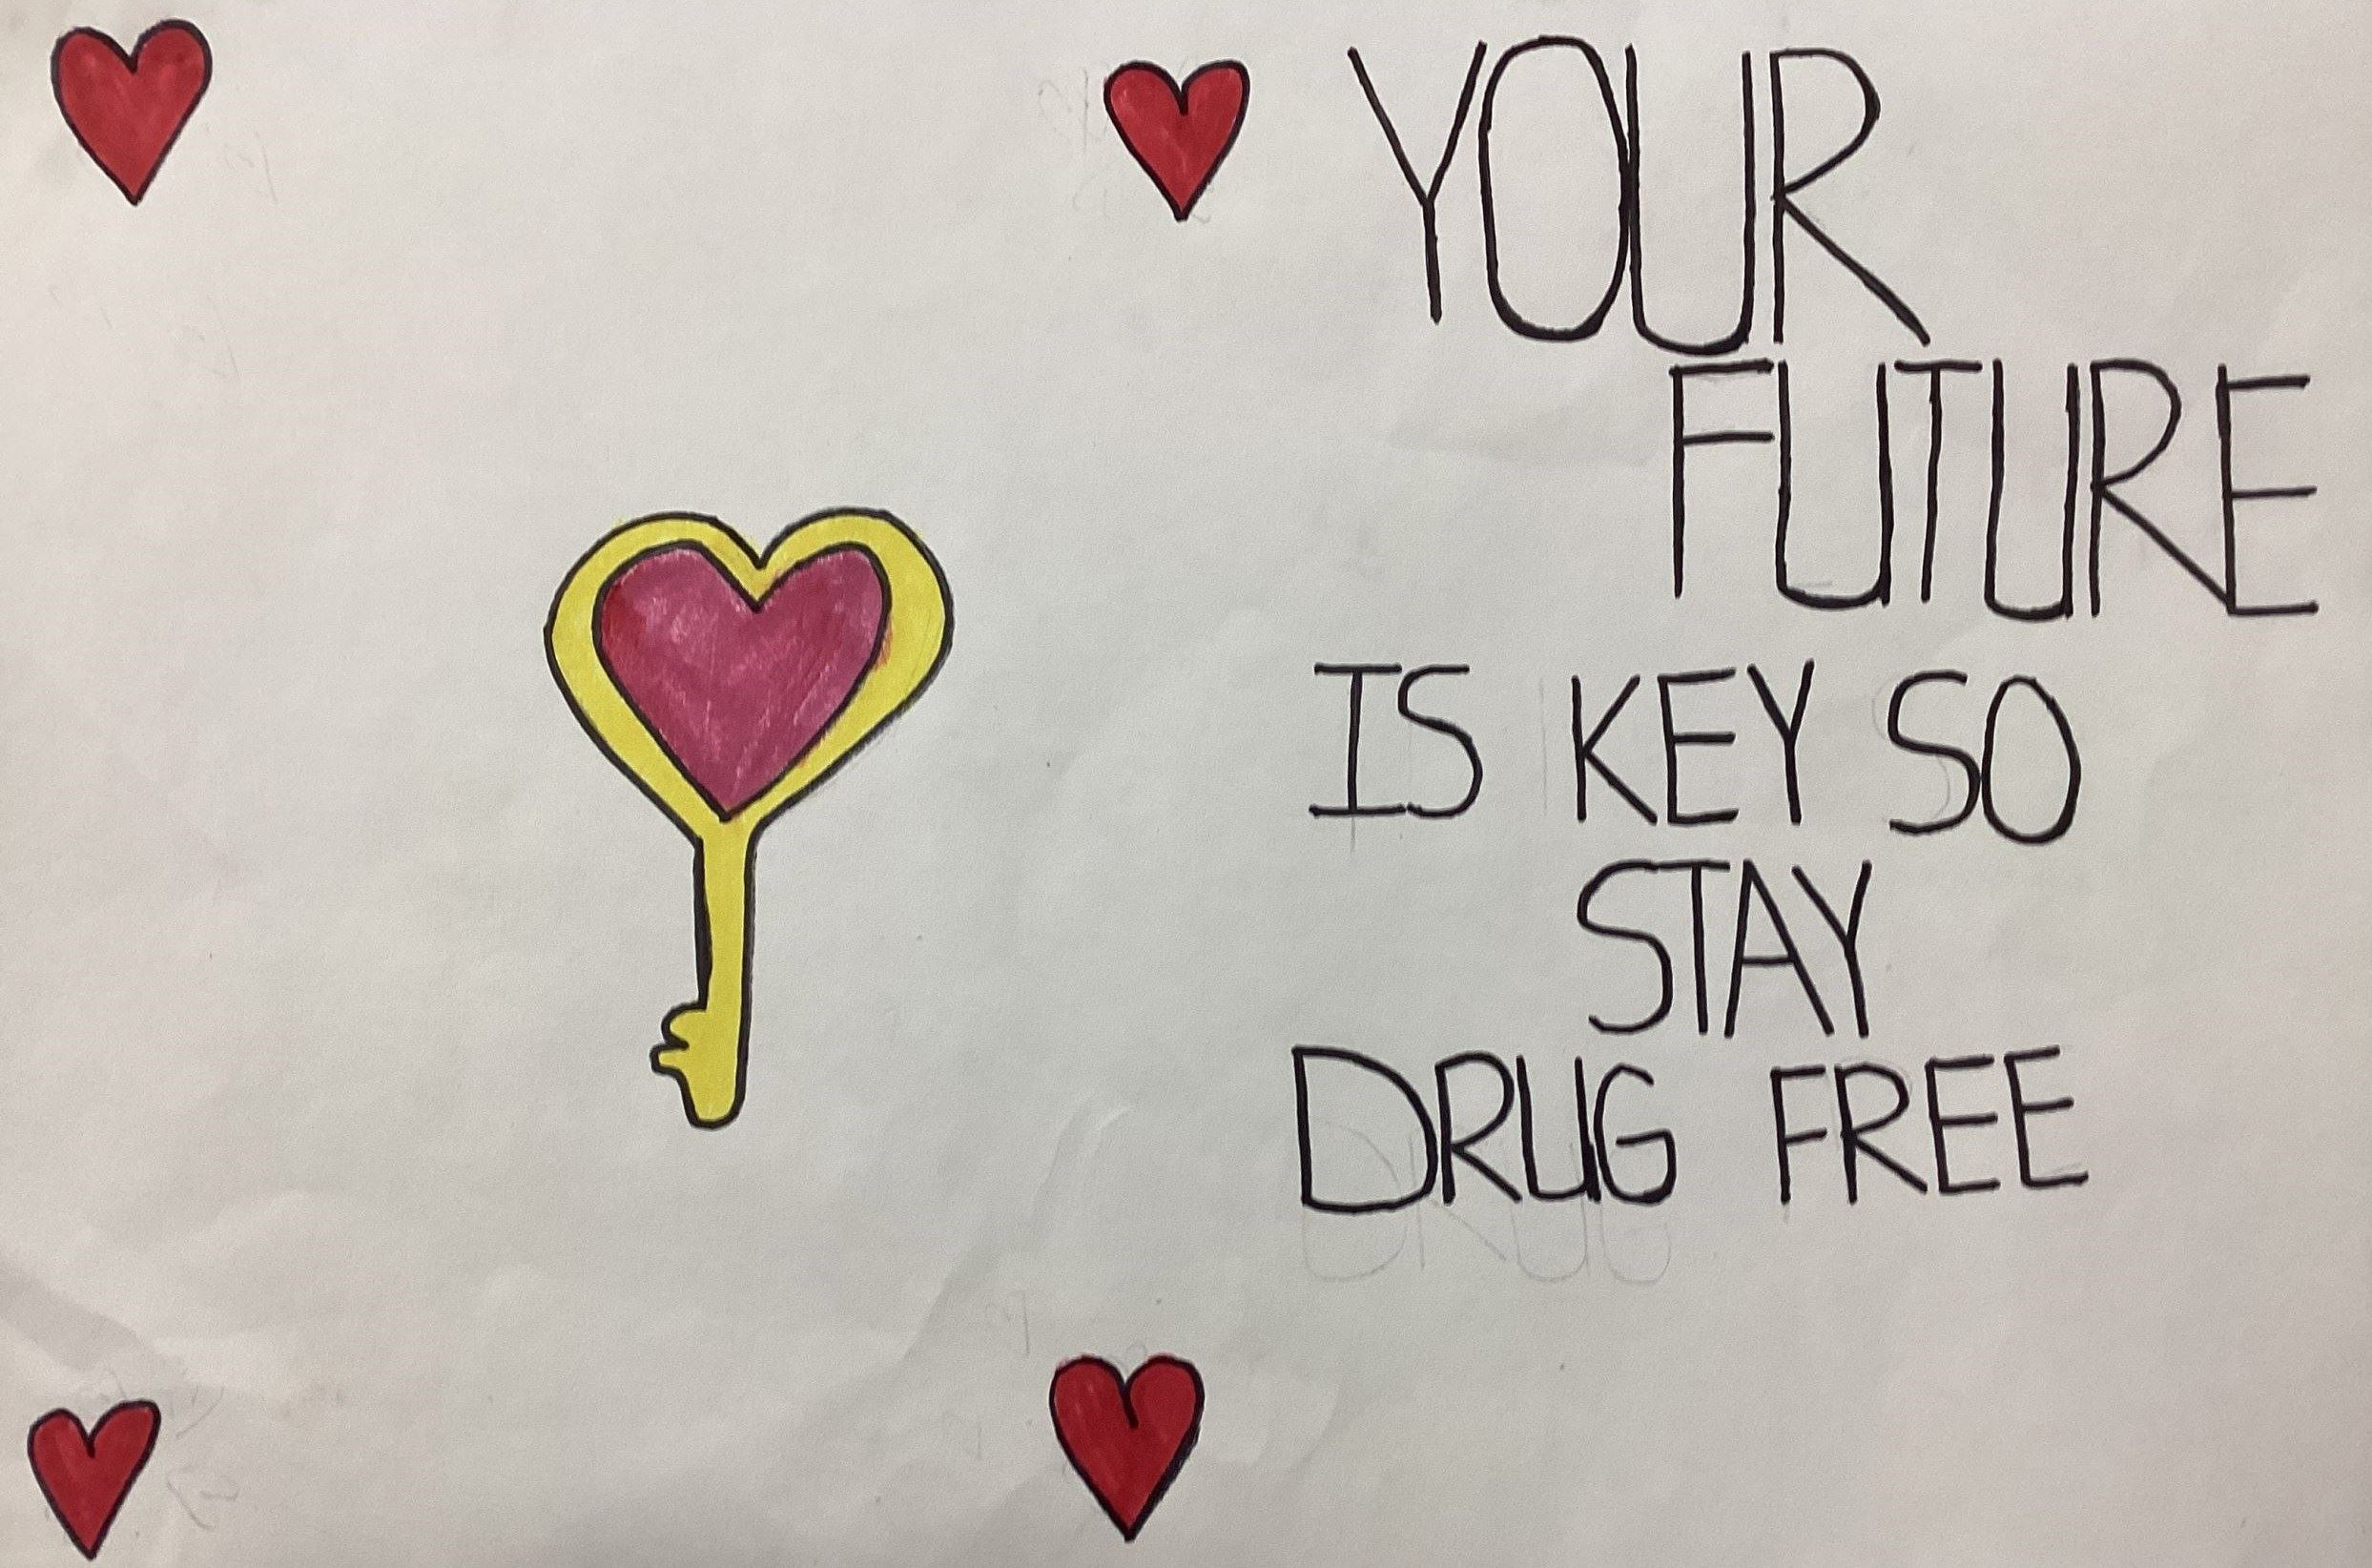 YOUR
FUTURE
IS KEY SO
STAY
DRUG FREE
DRUG